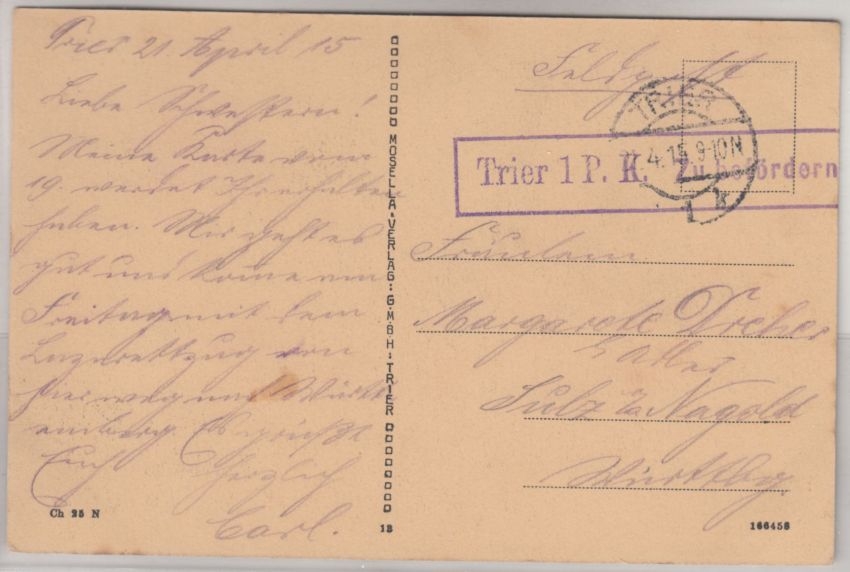 Trier 21. April 15
Liebe Schwestern!
Meine Karte vom
19. werdet Ihr erhalten
haben. Mir geht es
gut und komme am
Freitag mit dem
Lazarettzug von
hier weg nach Württ
emberg. Es grüßt
Euch herzlich
Carl.
Ch 25 N
MOSELLA-VERLAG: G.M.B.H: TRIER
13
Feldpost
TRIER
4.15.9-10N
1 k
Trier 1 P. K. Zu befördern
Fräulein
Margarete Dreher
Sulz a/ Nagold
Württbg.
166458